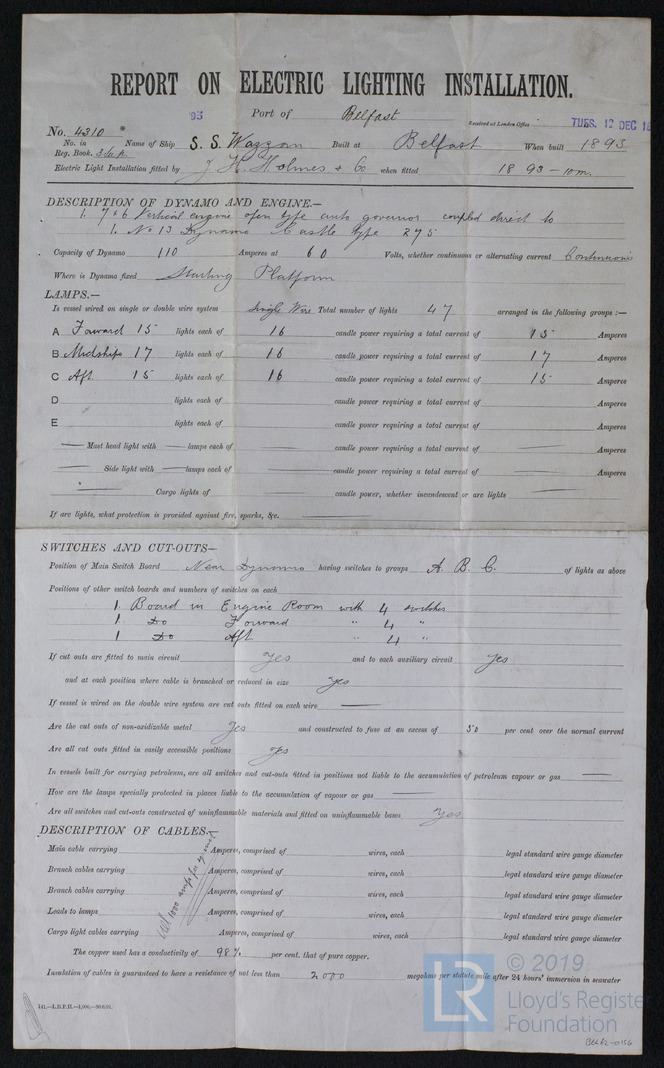 REPORT ON ELECTRIC LIGHTING INSTALLATION.
93 Port of Belfast Received at London Office TUES. 12 DEC 18
No. 4310
No. in Reg. Book. Name of Ship S. S. Wazzan Built at Belfast When built 1893
Electric Light Installation fitted by J. H. Holmes & Co when fitted 1893 - 10m.
DESCRIPTION OF DYNAMO AND ENGINE.—
1. 7 x 6 Vertical engine open type auto governor coupled direct to
1. No 13 Dynamo Castle type 275
Capacity of Dynamo 110 Amperes at 60 Volts, whether continuous or alternating current Continuous
Where is Dynamo fixed Starting Platform
LAMPS.—
Is vessel wired on single or double wire system Single Wire Total number of lights 47 arranged in the following groups :—
A Forward 15 lights each of 16 candle power requiring a total current of 15 Amperes
B Midships 17 lights each of 16 candle power requiring a total current of 17 Amperes
C Aft. 15 lights each of 16 candle power requiring a total current of 15 Amperes
D lights each of candle power requiring a total current of Amperes
E lights each of candle power requiring a total current of Amperes
— Mast head light with — lamps each of — candle power requiring a total current of — Amperes
— Side light with — lamps each of — candle power requiring a total current of — Amperes
— Cargo lights of — candle power, whether incandescent or arc lights —
If arc lights, what protection is provided against fire, sparks, &c. —
SWITCHES AND CUT-OUTS—
Position of Main Switch Board Near Dynamo having switches to groups A. B. C. of lights as above
Positions of other switch boards and numbers of switches on each
1. Board in Engine Room with 4 switches
1. Do Forward " 4 "
1 Do Aft " 4 "
If cut outs are fitted to main circuit Yes and to each auxiliary circuit Yes
and at each position where cable is branched or reduced in size Yes
If vessel is wired on the double wire system are cut outs fitted on each wire —
Are the cut outs of non-oxidizable metal Yes and constructed to fuse at an excess of 50 per cent over the normal current
Are all cut outs fitted in easily accessible positions Yes
In vessels built for carrying petroleum, are all switches and cut-outs fitted in positions not liable to the accumulation of petroleum vapour or gas —
How are the lamps specially protected in places liable to the accumulation of vapour or gas —
Are all switches and cut-outs constructed of uninflammable materials and fitted on uninflammable bases Yes
DESCRIPTION OF CABLES.—
Main cable carrying Amperes, comprised of wires, each legal standard wire gauge diameter
Branch cables carrying Amperes, comprised of wires, each legal standard wire gauge diameter
Branch cables carrying Amperes, comprised of wires, each legal standard wire gauge diameter
Leads to lamps Amperes, comprised of wires, each legal standard wire gauge diameter
Cargo light cables carrying Amperes, comprised of wires, each legal standard wire gauge diameter
All 1000 amps per
The copper used has a conductivity of 98% per cent. that of pure copper.
Insulation of cables is guaranteed to have a resistance of not less than 2000 megohms per statute mile after 24 hours' immersion in seawater
© 2019
LR Lloyd's Register
Foundation